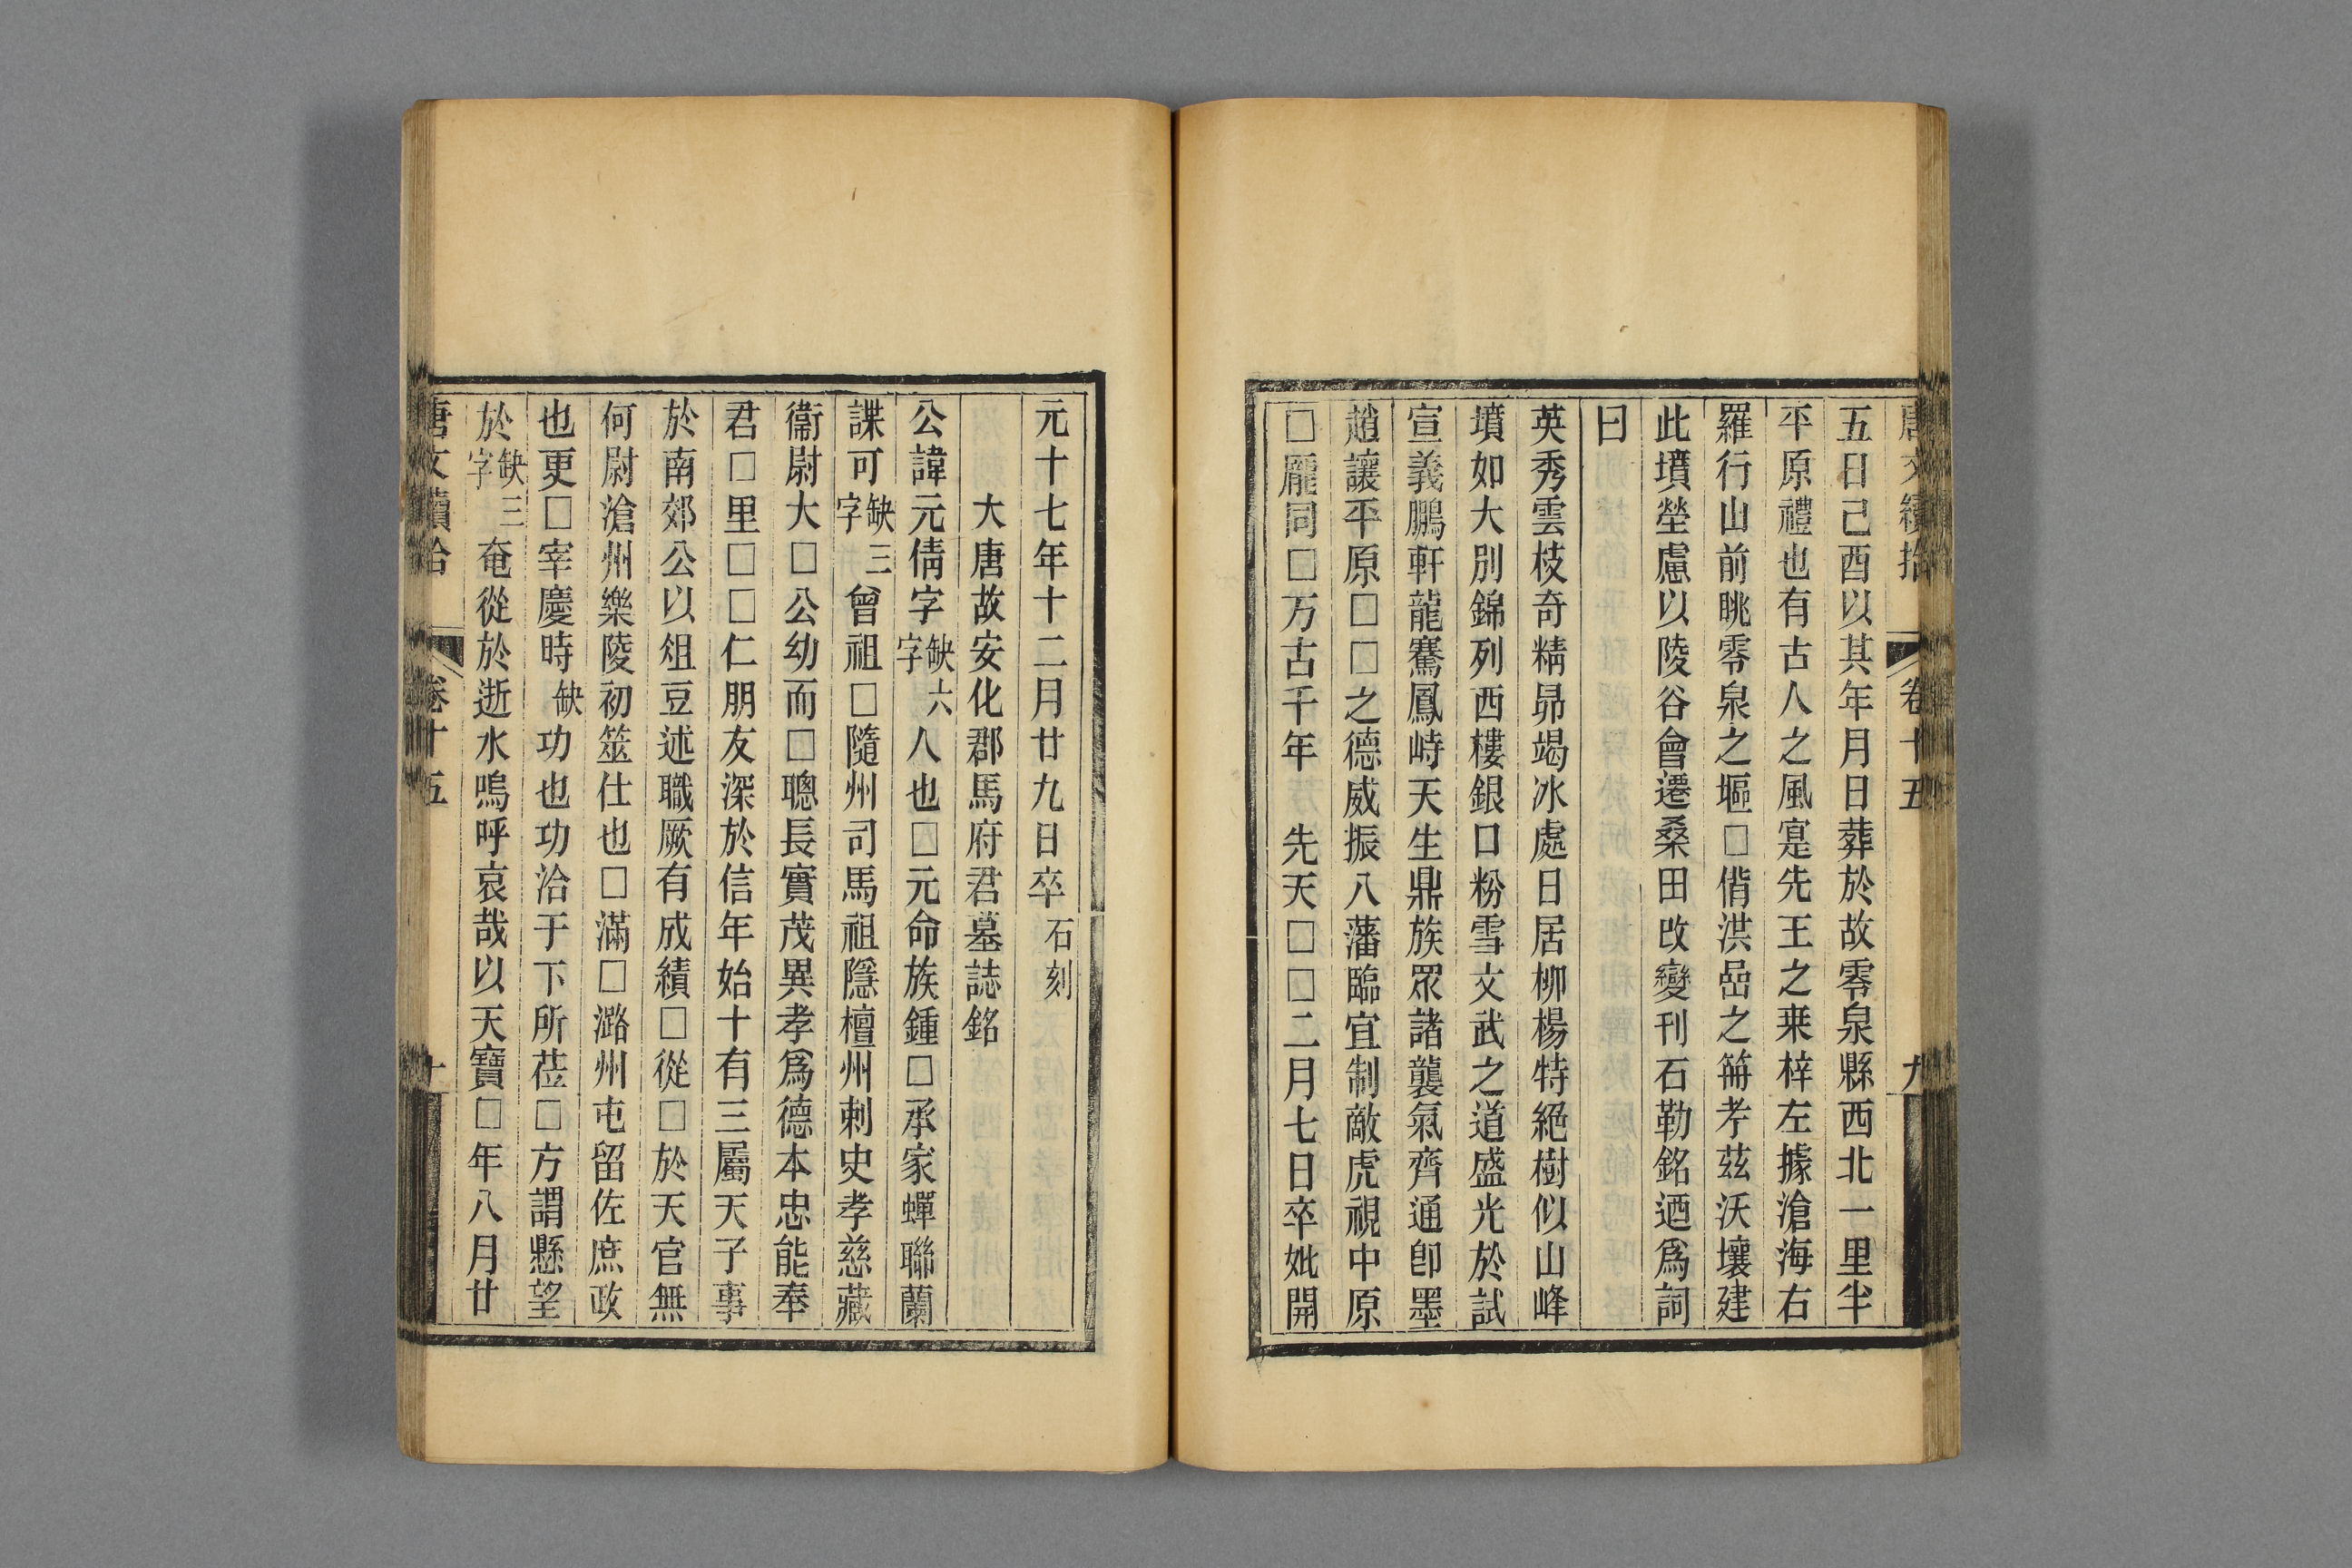 唐文續拾 卷十五 九
五日己酉以其年月日葬於故零泉縣西北一里半
平原禮也有古人之風寔先王之来梓左據滄海右
羅行山前眺零泉之堰□偝洪嵒之笧孝茲沃壤建
此墳塋慮以陵谷會遷桑田改變刊石勒銘迺爲詞
曰
英秀雲枝奇精昴竭冰處日居柳楊特絕樹似山峰
墳如大別錦列西樓銀口粉雪文武之道盛光於試
宣義鵬軒龍騫鳳峙天生鼎族眾諸襲氣齊通卽墨
趙讓平原□□之德威振八藩臨宜制敵虎視中原
□龐同□万古千年 先天□□二月七日卒妣開
元十七年十二月廿九日卒 石刻
大唐故安化郡馬府君墓誌銘
公諱元倩字缺六字人也□元命族鍾□承家蟬聯蘭
諜可缺三字曾祖□隨州司馬祖隱檀州刺史孝慈藏
衞尉大□公幼而□聰長實茂異孝爲德本忠能奉
君□里□□仁朋友深於信年始十有三屬天子事
於南郊公以俎豆述職厥有成績□從□於天官無
何尉滄州樂陵初筮仕也□滿□潞州屯留佐庶政
也更□宰慶時缺功也功洽于下所莅□方謂懸望
於缺三字奄從於逝水嗚呼哀哉以天寶□年八月廿
唐文續拾 卷十五 十